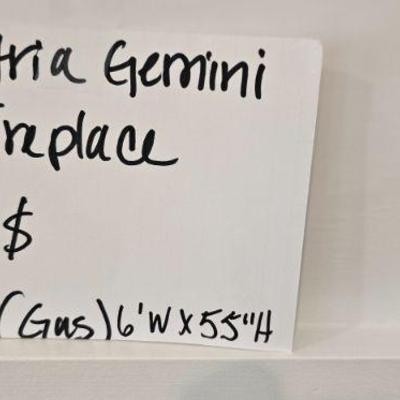 tria Gemini
ireplace
$
(Gas) 6'W X 55"H